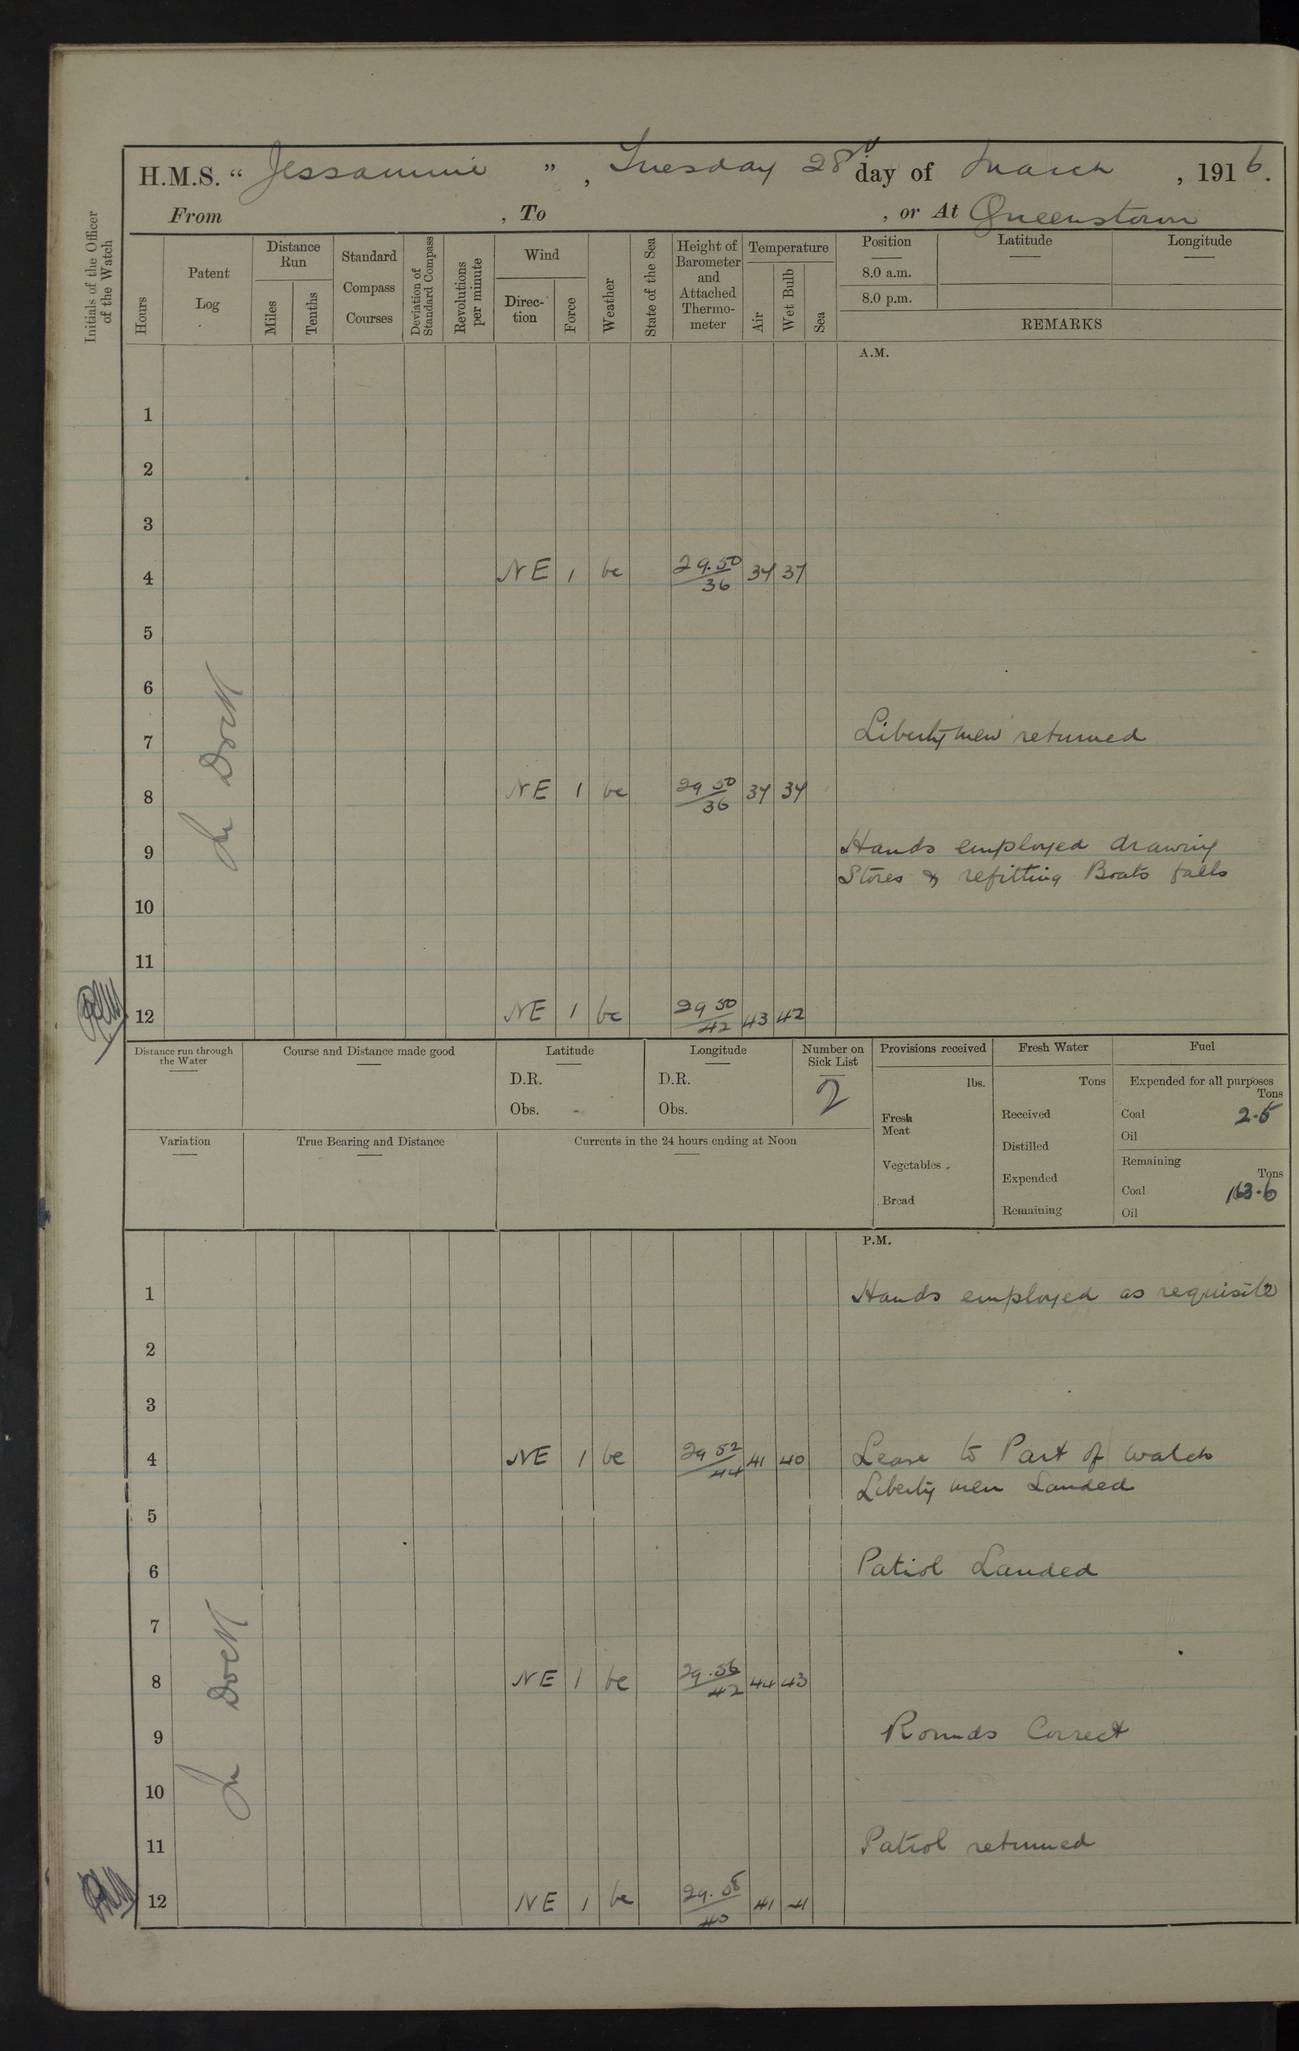 H.M.S. “ Jessamine ” , Tuesday 28 day of March , 1916.
From , To , or At Queenstown
Initials of the Officer of the Watch
Hours
Patent Log
Distance Run
Miles
Tenths
Standard Compass Courses
Deviation of Standard Compass
Revolutions per minute
Wind
Direc-tion
Force
Weather
State of the Sea
Height of Barometer and Attached Thermo-meter
Temperature
Air
Wet Bulb
Sea
Position
Latitude
Longitude
8.0 a.m.
8.0 p.m.
REMARKS
A.M.
In Dock
1
2
3
4 NE 1 bc 29.50/36 37 37
5
6
7 Liberty men returned
8 NE 1 bc 29 50/36 37 37
9 Hands employed drawing
Stores & refitting Boats falls
10
11
12 NE 1 bc 29 50/42 43 42
Distance run through the Water
Course and Distance made good
Latitude
D.R.
Obs.
Longitude
D.R.
Obs.
Number on Sick List
2
Provisions received
lbs.
Fresh Meat
Vegetables
Bread
Fresh Water
Tons
Received
Distilled
Expended
Remaining
Fuel
Expended for all purposes
Tons
Coal 2.5
Oil
Remaining
Tons
Coal 163.6
Oil
Variation
True Bearing and Distance
Currents in the 24 hours ending at Noon
P.M.
In Dock
1 Hands employed as requisite
2
3
4 NE 1 bc 29 52/44 41 40 Leave to Part of Watch
Liberty men Landed
5
6 Patrol Landed
7
8 NE 1 bc 29.56/42 44 43
9 Rounds Correct
10
11 Patrol returned
12 NE 1 bc 29.58/40 41 41